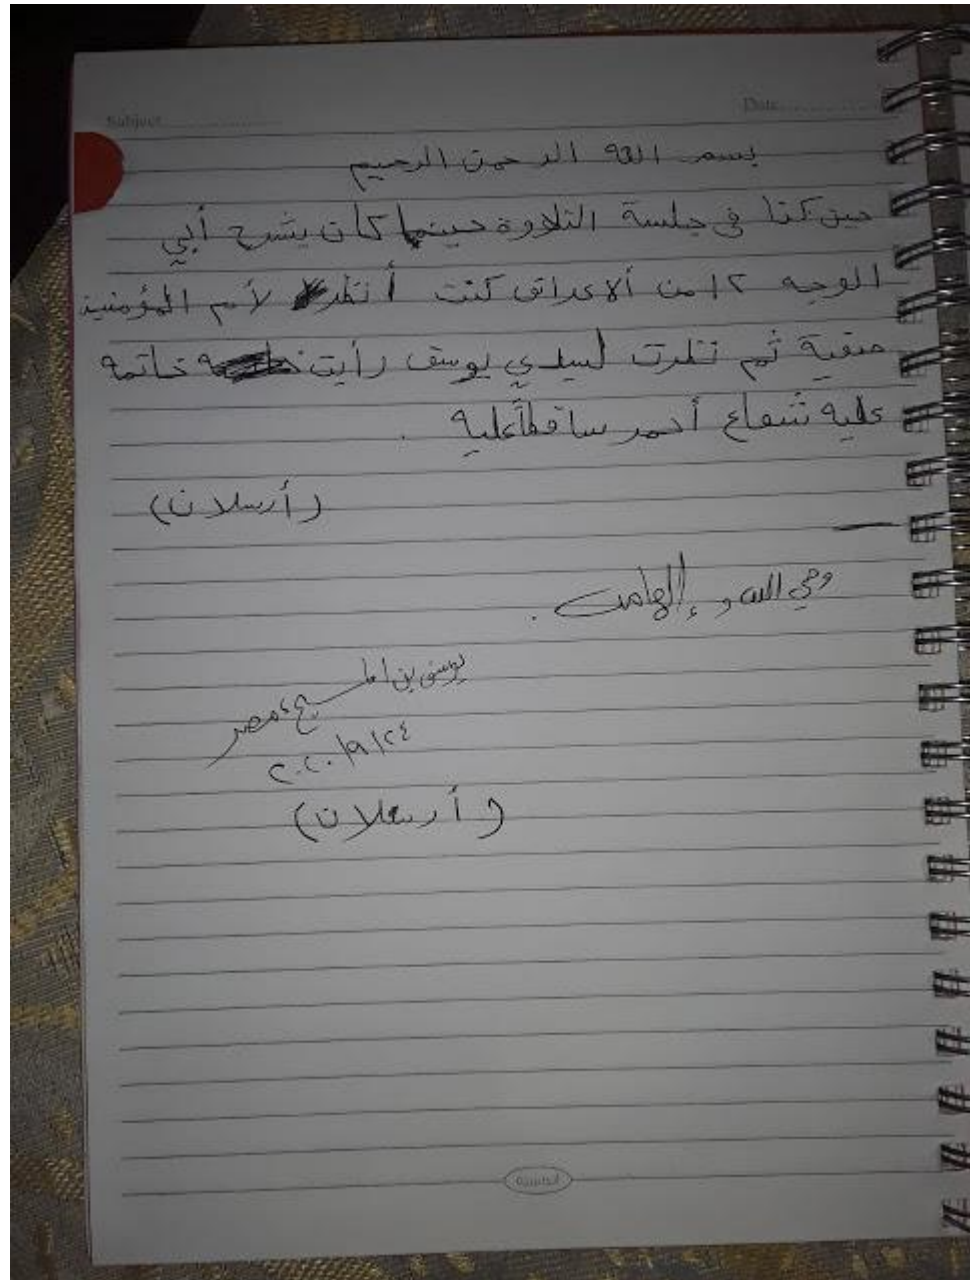 Subject
Date
بسم الله الرحمن الرحيم
حين كنا في جلسة التلاوة حينما كان يشرح أبي
الوجه ١٢ من ألاعراف كنت أنظر لأم المؤمنين
صفية ثم نظرت لسيدي يوسف رأيت خاتمه
عليه شعاع أحمر ساقطاً عليه .
(أرسلان)
وحي الله و إلهامه .
يوسف بن المسيح، مصر
٢٠٢٠/٩/٢٤
(أرسلان)